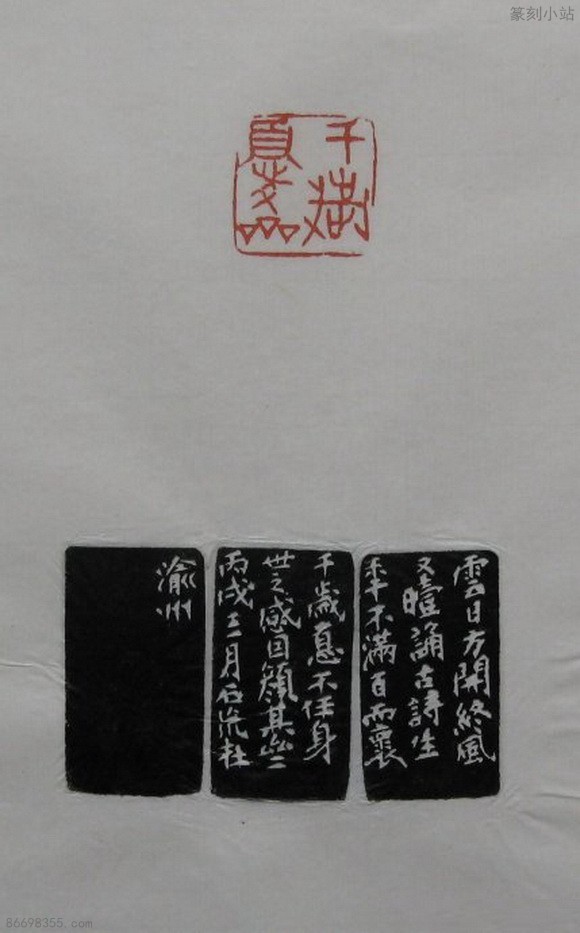 篆刻小站
千
雲日方開終風
又曀誦古詩生
年不滿百而裹
千歲不任身
世之感因顏其
丙戌三月石流杜
渝州
86698355.com